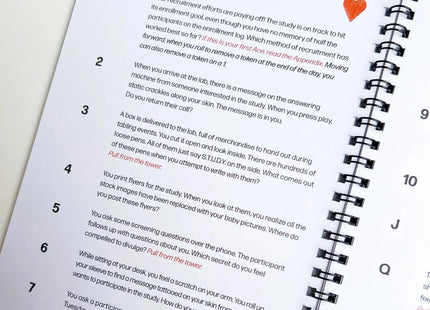 recruitment efforts are paying off! The study is on track to hit
its enrollment goal, even though you have no memory of half the
participants on the enrollment log. Which method of recruitment has
worked best so far? If this is your first Ace, read the Appendix. Moving
forward, when you roll to remove a token at the end of the day, you
can also remove a token on a 1.
2
When you arrive at the lab, there is a message on the answering
machine from someone interested in the study. When you press play,
static crackles along your skin. The message is in you.
Do you return their call?
3
A box is delivered to the lab, full of merchandise to hand out during
tabling events. You cut it open and look inside. There are hundreds of
loose pens. All of them just say S.T.U.D.Y. on the side. What comes out
of these pens when you attempt to write with them?
Pull from the tower.
4
You print flyers for the study. When you look at them, you realize all the
stock images have been replaced with your baby pictures. Where do
you post these flyers?
5
You ask some screening questions over the phone. The participant
follows up with questions about you. Which secret do you feel
compelled to divulge? Pull from the tower.
6
While sitting at your desk, you feel a scratch on your arm. You roll up
your sleeve to find a message tattooed on your skin from
wants to participate in the study. How do you
7
You ask a partici
Tuesday
9
10
J
Q